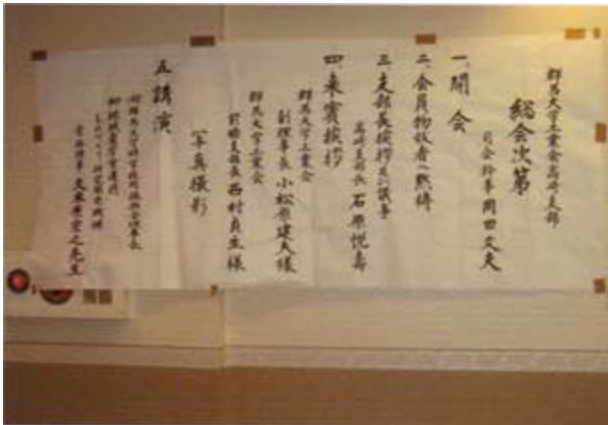 群馬大学工業会高崎支部
総会次第
司会幹事 岡田文夫
一、開会
二、会員物故者へ黙祷
三、支部長挨拶及び議事
高崎支部長 石原悦寿
四、来賓挨拶
群馬大学工業会
副理事長 小松原建夫様
群馬大学工業会
前橋支部長 西村貞生様
写真撮影
五、講演
久米原宏之先生